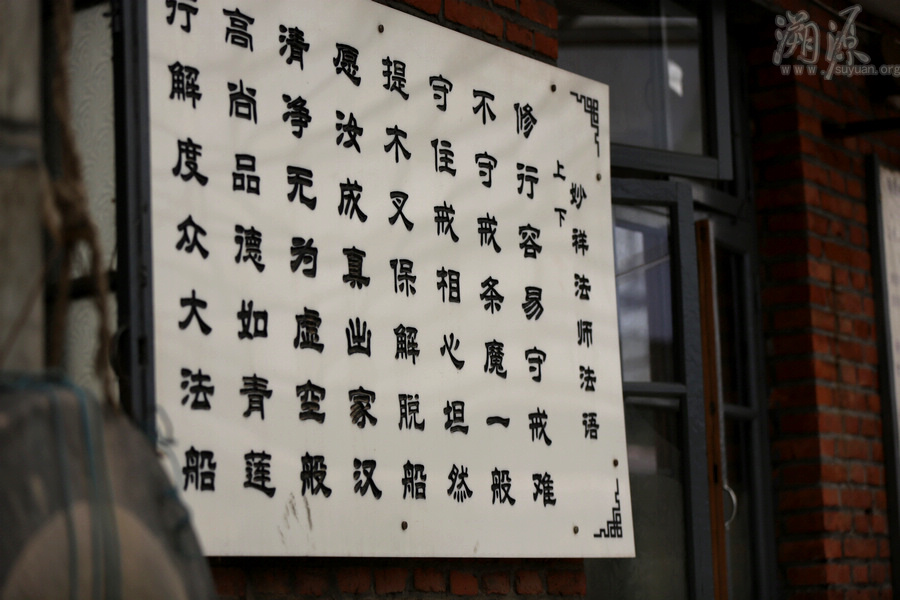 妙祥法师法语
上下
修行容易守戒难
不守戒条魔一般
守住戒相心坦然
提木叉保解脱船
愿汝成真出家汉
清净无为虚空般
高尚品德如青莲
行解度众大法船
溯源
www.suyuan.org